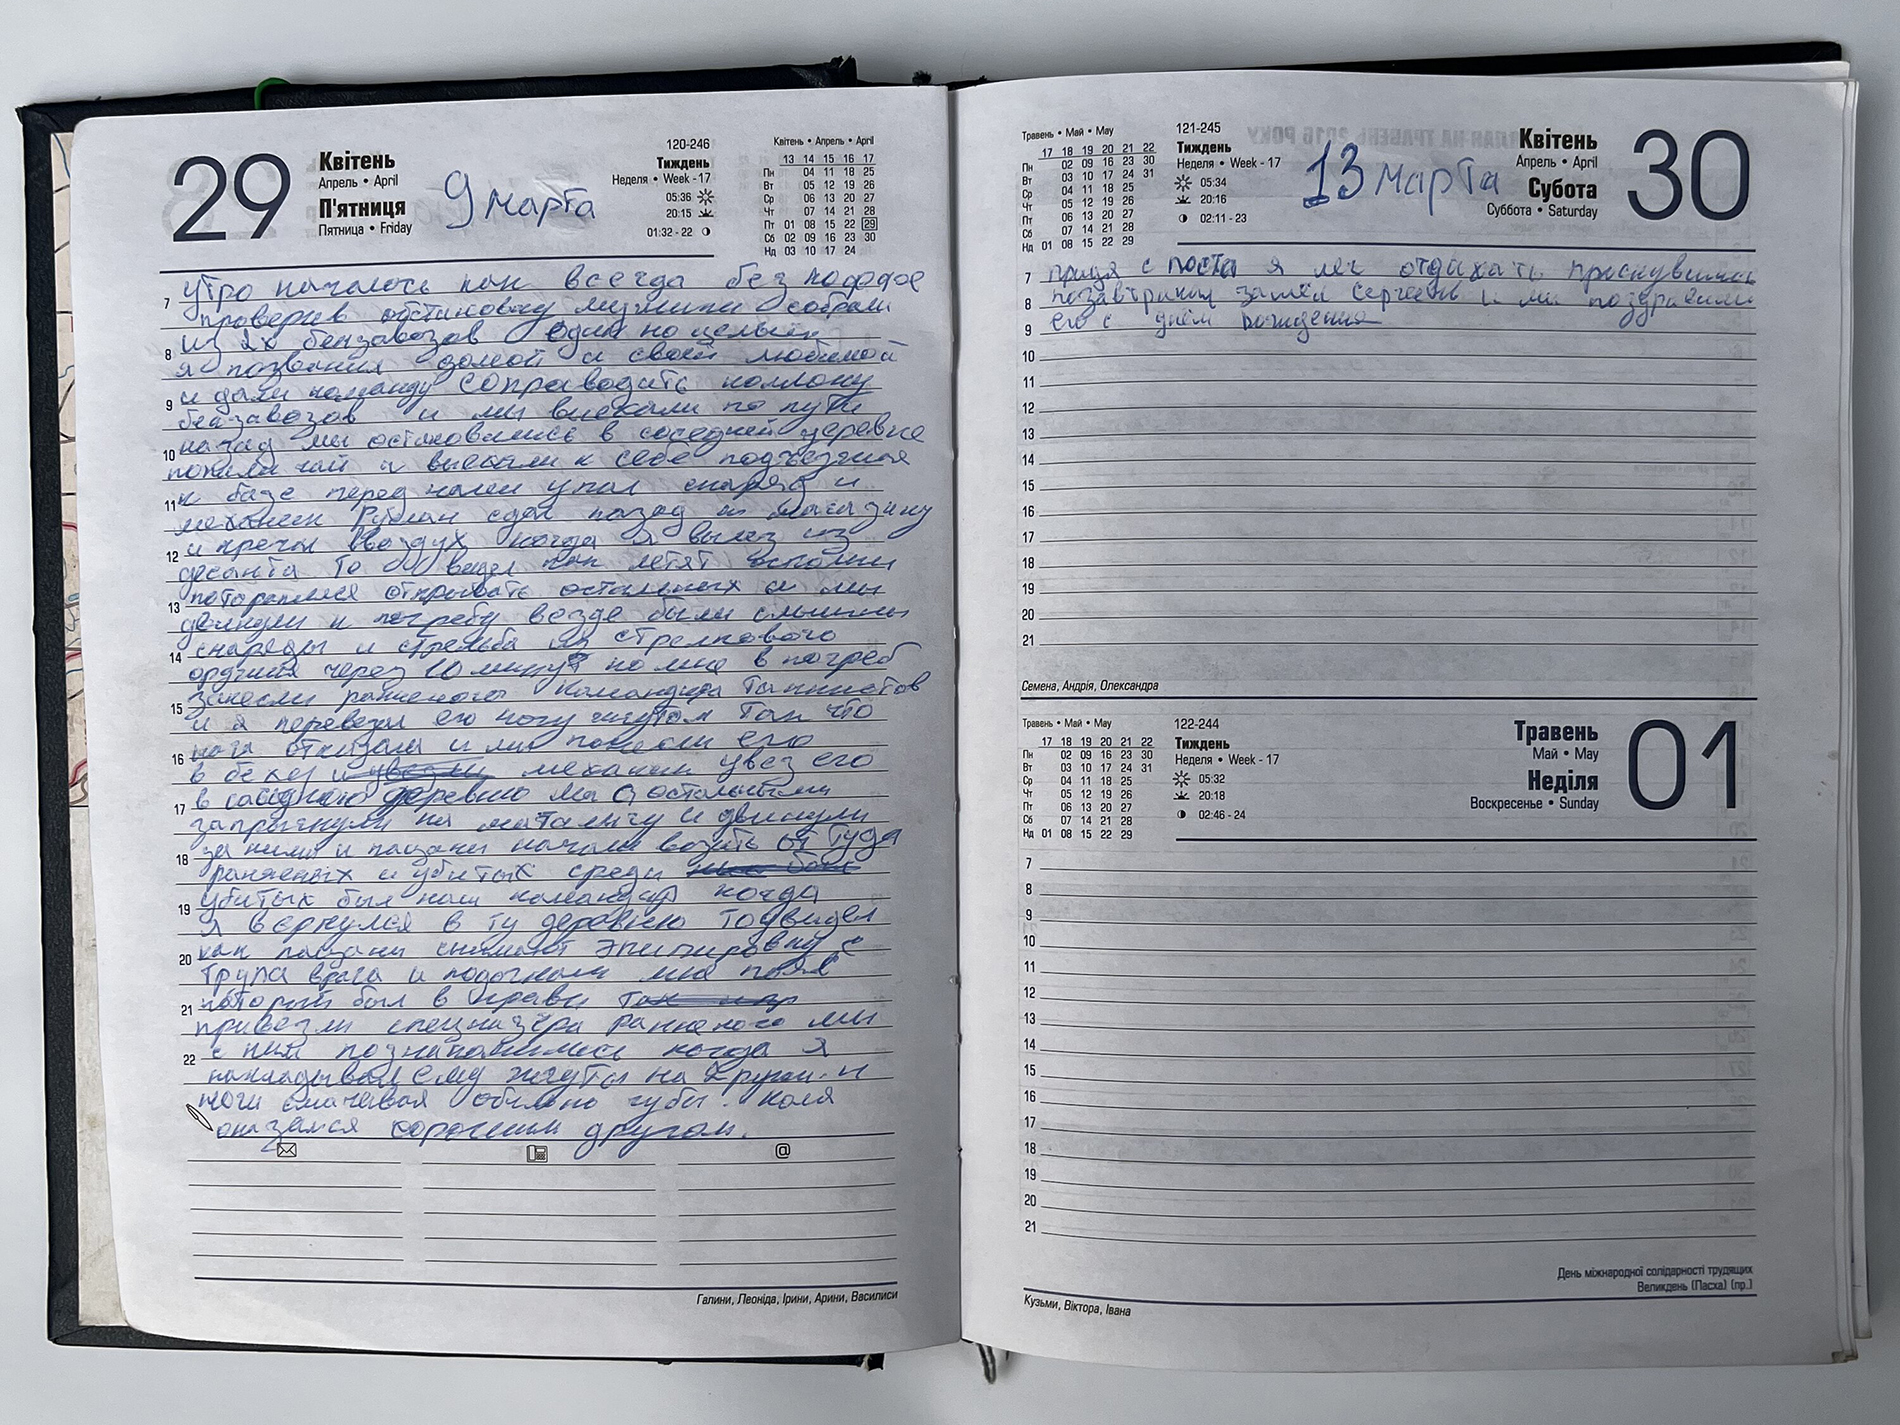 29
Квітень
Апрель • April
П'ятниця
Пятница • Friday
9 марта
120-246
Тиждень
Неделя • Week - 17
05:36
20:15
01:32 - 22
Квітень • Апрель • April
13 14 15 16 17
Пн 04 11 18 25
Вт 05 12 19 26
Ср 06 13 20 27
Чт 07 14 21 28
Пт 01 08 15 22 29
Сб 02 09 16 23 30
Нд 03 10 17 24
утро началось как всегда без
7 проверив обстановку мужики собрали
из 2х бензавозов один но целый
8 я позвонил домой и своей любимой
и дали команду сопроводить колонну
9 бензавозов и мы выехали по пути
назад мы остановились в соседней деревне
10 попили чай и выехали к себе подъезжая
к базе перед нами упал снаряд и
11 механик Руслан сдал назад к магазину
и кречы ввоздух когда я вылез из
12 десанта то видел как летят
поторопился открывать остальных и мы
13 двинули к погребу везде были слышны
снаряды и стрельба из стрелкового
14 оружия через 10 минут ко мне в погреб
занесли раненого командира танкистов
15 и я перевезал его ногу жгутом так что
нога отказала и мы понесли его
16 в беху и увезли механик увез его
в саседною деревню мы с остальными
17 запрыгнули на маталыгу и двинули
за ними и пацаны начали возить от туда
18 раненых и убитых среди
убитых был наш командир когда
19 я вернулся в ту деревню то увидел
как пацаны снимают экипировку с
20 трупа врага и подогнали мне пояс
который был в крови
21 привезли спецназёра раненого мы
с ним познакомились когда я
22 накладывал ему жгуты на 2 руки и
ноги смачивая обильно губы. Коля
оказался хорошим другом.
@
Галини, Леоніда, Ірини, Арини, Василиси
Травень • Май • May
17 18 19 20 21 22
Пн 02 09 16 23 30
Вт 03 10 17 24 31
Ср 04 11 18 25
Чт 05 12 19 26
Пт 06 13 20 27
Сб 07 14 21 28
Нд 01 08 15 22 29
121-245
Тиждень
Неделя • Week - 17
05:34
20:16
02:11 - 23
13 марта
Квітень
Апрель • April
Субота
Суббота • Saturday
30
7 придя с поста я лег отдыхать проснувшись
8 позавтракал зашёл Сергеев и мы поздравили
9 его с днём рождения
10
11
12
13
14
15
16
17
18
19
20
21
Семена, Андрія, Олександра
Травень • Май • May
17 18 19 20 21 22
Пн 02 09 16 23 30
Вт 03 10 17 24 31
Ср 04 11 18 25
Чт 05 12 19 26
Пт 06 13 20 27
Сб 07 14 21 28
Нд 01 08 15 22 29
122-244
Тиждень
Неделя • Week - 17
05:32
20:18
02:46 - 24
Травень
Май • May
Неділя
Воскресенье • Sunday
01
7
8
9
10
11
12
13
14
15
16
17
18
19
20
21
День міжнародної солідарності трудящих
Великдень (Пасха) (пр.)
Кузьми, Віктора, Івана